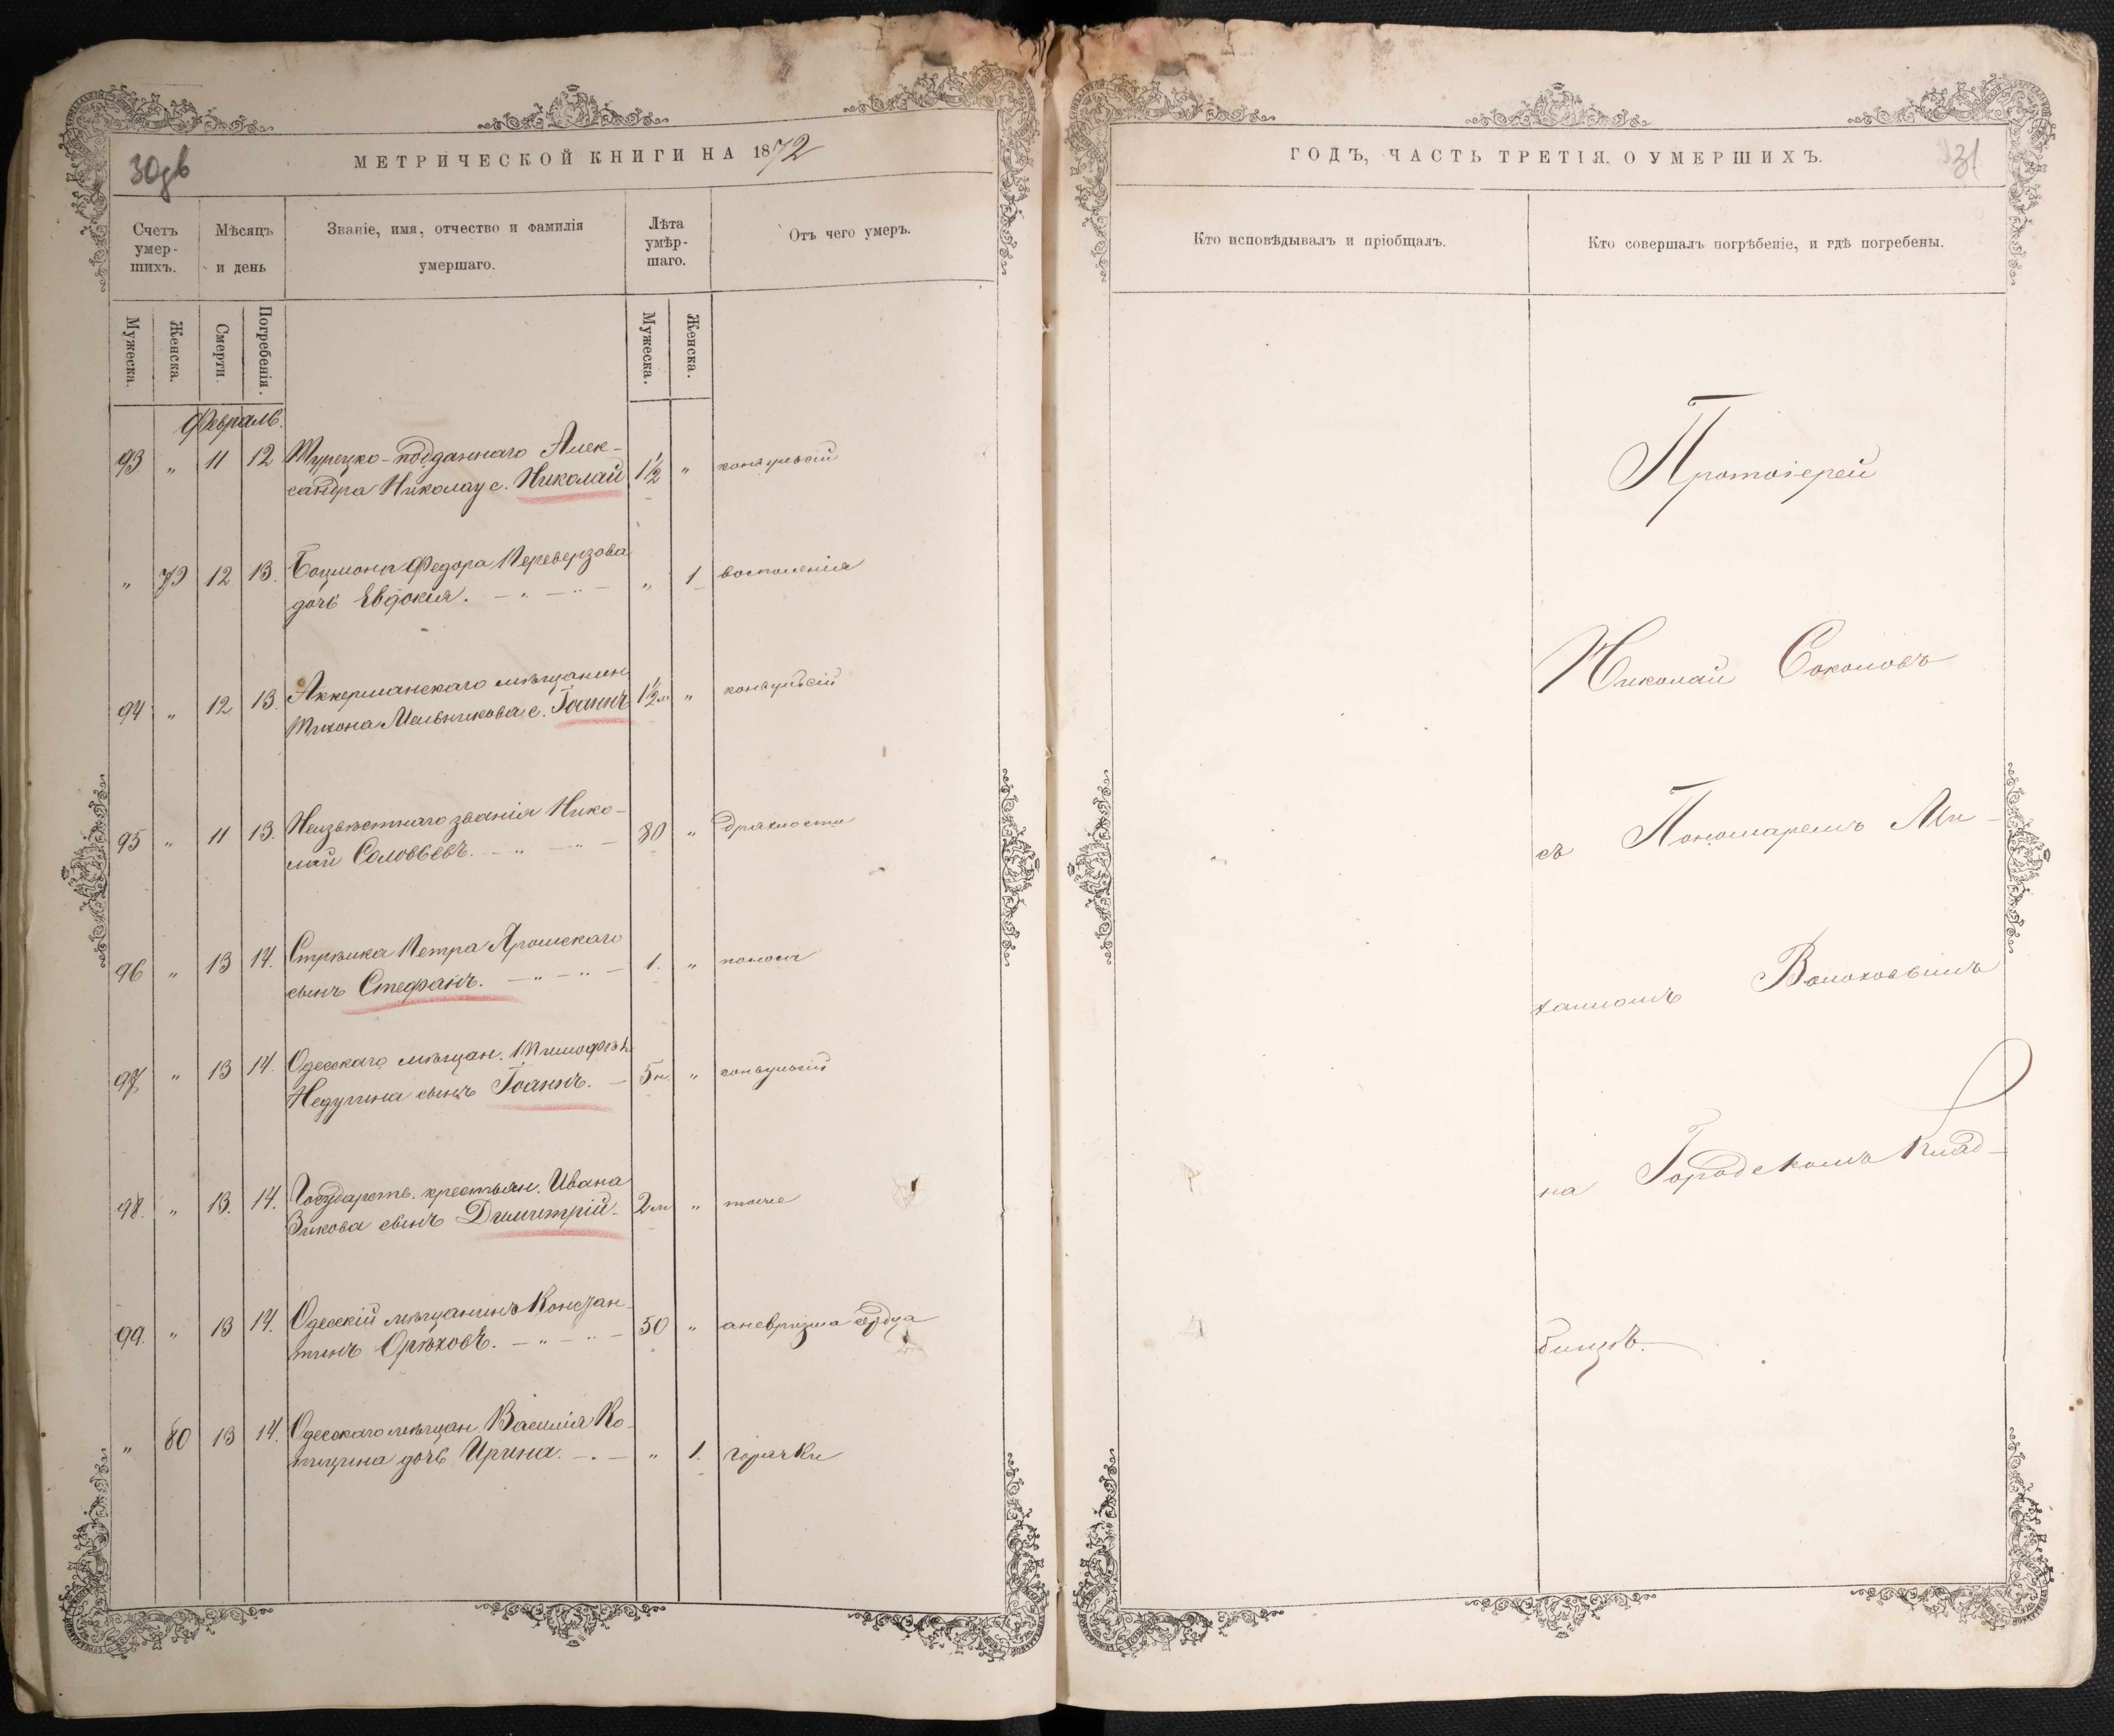 30 об
МЕТРИЧЕСКОЙ КНИГИ НА 1872
Счетъ умер-шихъ.
Мѣсяцъ и день
Званіе, имя, отчество и фамилія
умершаго.
Лѣта умѣр-шаго.
Отъ чего умеръ.
Мужеска.
Женска.
Смерти.
Погребенія.
Мужеска.
Женска.
Февраль.
93 " 11 12 Турецко-подданнаго Алек-
сандра Николау с. Николай 1½ " конвульсій
" 79 12 13. Боцмона Федора Переверзова
дочь Евдокія. " 1 воспаленія
94 " 12 13. Аккерманскаго мѣщанин
Тихона Мельникова с. Іоаннъ 1½ м " конвульсій
95 " 11 13. Неизвѣстнаго званія Нико-
лай Соловьевъ. 80 " дряхлости
96 " 13 14. Стрѣлка Петра Ярошскаго
сынъ Стефанъ. 1. " поноса
97 " 13 14. Одесскаго мѣщан. Тимофѣя
сынъ Іоаннъ. 5 н. " конвульсій
98. " 13. 14. Государств. крестьян. Ивана
Зикова сынъ Димитрій 2 м " тоже
99. " 13 14. Одесскій мѣщанинъ Констан-
тинъ Орѣховъ. 50 " аневризма сердца
" 80 13 14. Одесскаго мѣщан. Василія Ко-
дочь Ирина. " 1. горячки
ГОДЪ, ЧАСТЬ ТРЕТІЯ. О УМЕРШИХЪ.
31
Кто исповѣдывалъ и пріобщалъ.
Кто совершалъ погрѣбеніе, и гдѣ погребены.
Протоіерей
Николай Соколовъ
съ Пономаремъ Ми-
хаиломъ Волоховымъ
на Городскомъ Клад-
бищѣ.